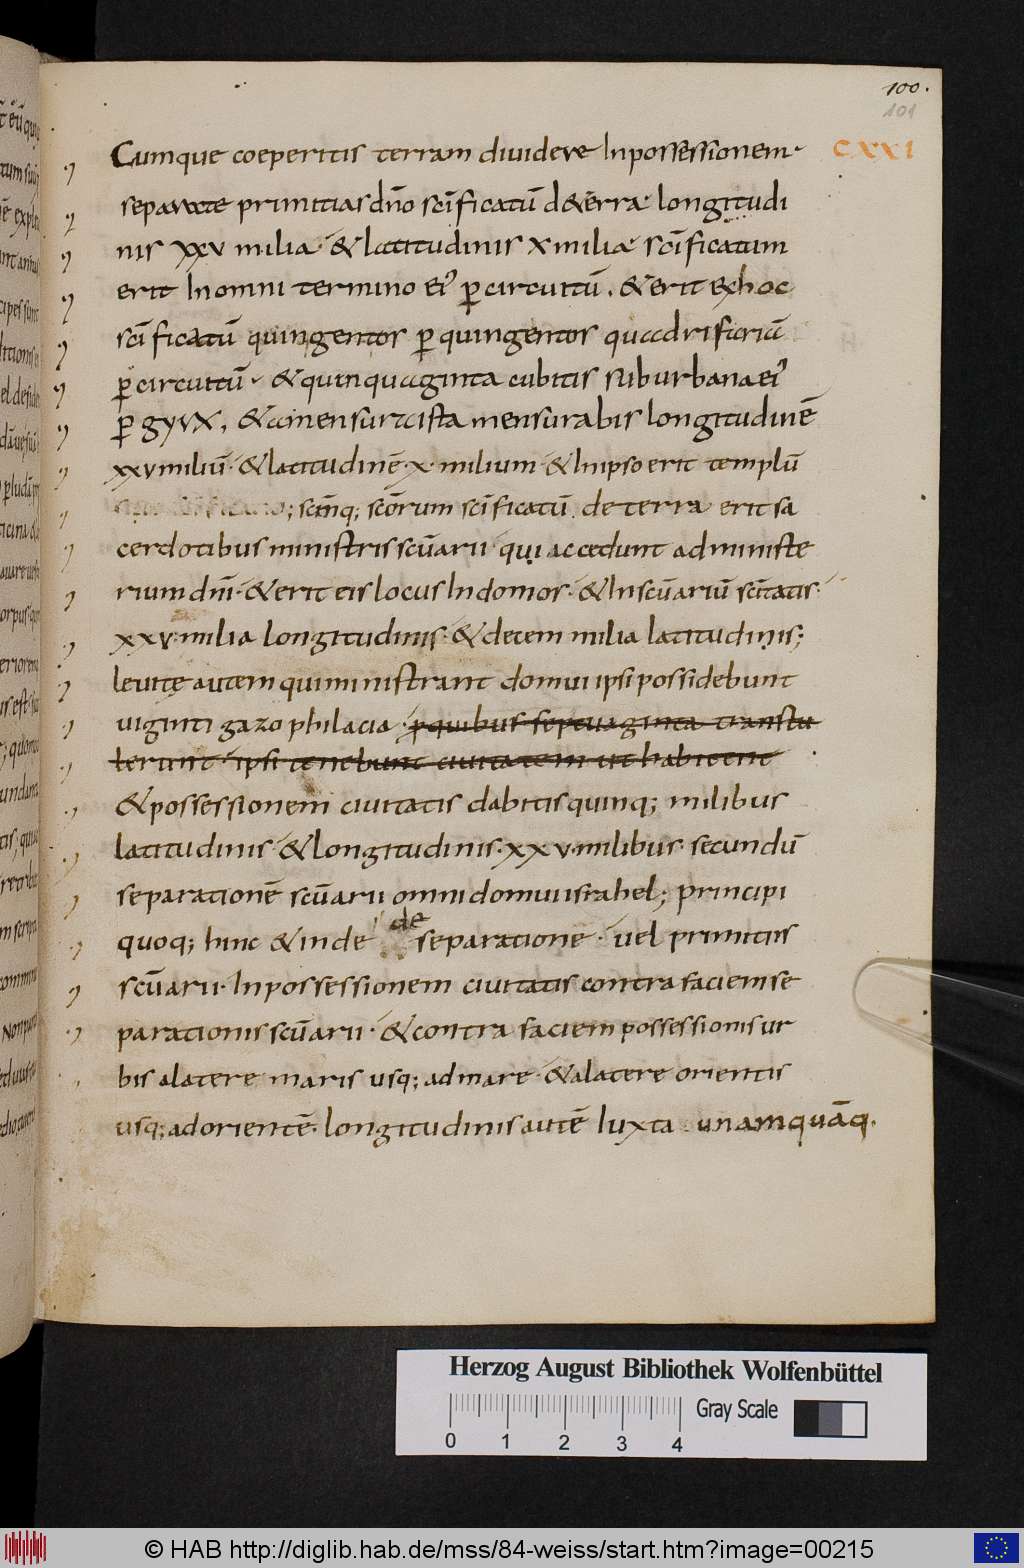 100.
101
Cumque coeperitis terram diuidere In possessionem· CXXI
separate primitias dn̄o sc̄ificatū de terra· longitudi
nis xxv milia· & latitudinis x milia· sc̄ificatum
erit In omni termino ei' p̱ circuitū. & erit ex hoc
sc̄ificatū quingentos p̱ quingentos quadrifariā
p̱ circuitū· & quinquaginta cubitis suburbana ei'
p̱ gyrx. & a mensura ista mensurabis longitudinē
xxv miliū· & latitudinē· x· milium· & In ipso erit templū
; scm̄q; scōrum sc̄ificatū. de terra erit sa
cerdotibus ministris scūarii· qui accedunt ad ministe
rium dn̄i· & erit eis locus In domos· & In scūariū sc̄itatis·
xxv· milia longitudinis· & decem milia latitudinis;
leuitę autem qui ministrant domui ipsi possidebunt
uiginti gazophilacia· p̱ quibus septuaginta transtu
lerunt ipsi tenebunt ciuitatem ut habitent
& possessionem ciuitatis dabitis quinq; milibus
latitudinis· & longitudinis· xxv· milibus· secundū
separationē scūarii omni domui israhel; principi
quoq; hinc & inde de separatione· uel primitiis
scūarii· In possessionem ciuitatis contra faciem se
parationis scūarii· & contra faciem possessionis ur
bis a latere maris usq; ad mare· & a latere orientis
usq; ad orientē· longitudinis autē Iuxta unamquāq.
Herzog August Bibliothek Wolfenbüttel
Gray Scale
0 1 2 3 4
© HAB http://diglib.hab.de/mss/84-weiss/start.htm?image=00215